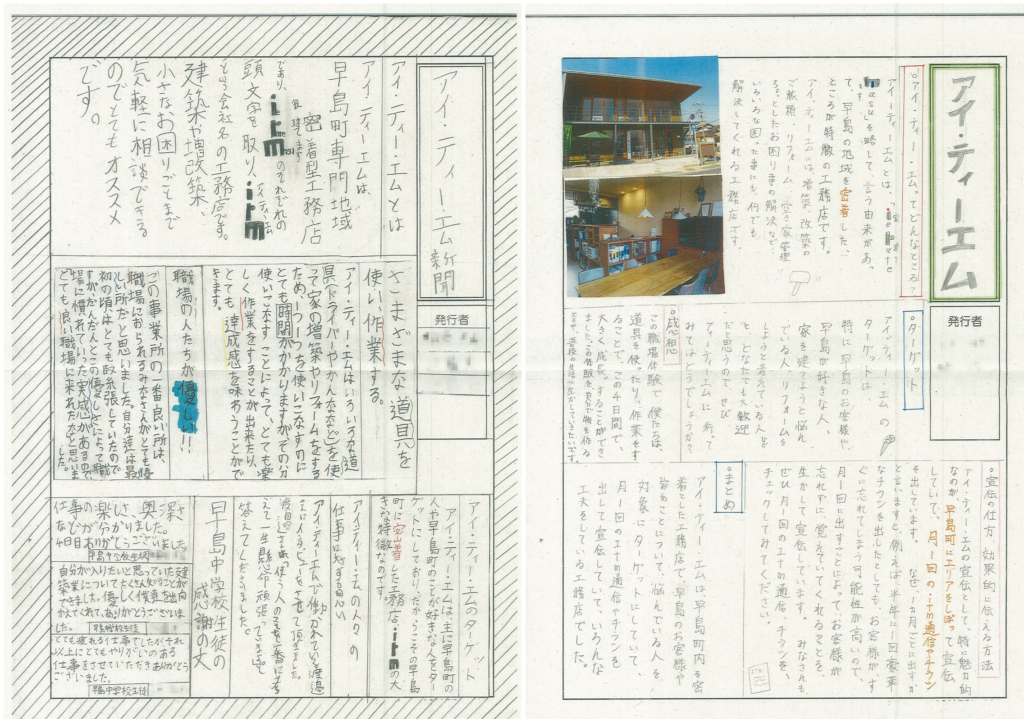 アイ・ティーエム新聞
発行者
アイ・ティー・エムとは
アイ・ティーエムは、
早島町専門地域
密着型工務店
であり、
itmのそれぞれの
頭文字を取り、itm
という会社名の工務店です。
建築や増改築、
小さなお困りごとまで
気軽に相談できる
のでとてもオススメ
です。
さまざまな道具を
使い、作業する。
アイ・ティーエムはいろいろな道
具(ドライバーやかんななど)を使
って家の増築やリフォームをする
ため一つ一つを使いこなすのに
とても時間がかかりますがその分
使いこなすことによって、とても楽
しく作業をすることが出来たり、
とても、達成感を味わうことがで
きます。
職場の人たちが優しい!!
この事業所の一番良い所は、
職場におられるみなさんがとても優
しい所だと思いました。自分達は最
初の頃はとても緊張していたので
すがだんだんとこの優しさによって職
場に慣れていった実感があるので
とても良い職場に来れたなと思いま
した。
アイ・ティー・エムのターゲット
アイ・ティー・エムは、主に早島町の
人や早島町のことが好きな人をター
ゲットにしておりだからこその早島
町に密着した工務店、itmの大
きな特徴なのです。
アイ・ティー・エムの人々の
仕事に対する思い
アイ・ティーエムで働かれている渡邉
さんにインタビューをさせて頂きました。
答えてくださりました。
早島中学校生徒の
感謝の文
仕事の楽しさ、奥深さ
などが分かりました。
4日間ありがとうございました
早島中学校生徒
自分が入りたいと思っていた建
築業についてたくさん知ることが出
来ました。優しく僕達を向
かえてくれて、ありがとうございま
した。
早島中学校生徒
とても疲れる仕事でしたがそれ
以上にとてもやりがいのある
仕事をさせていただきありがとう
ございました。
早島中学校生徒
アイ・ティーエム
発行者
○アイ・ティー・エムってどんなところ?
アイ・ティー・エムとは、
を略して、言う由来があっ
て、早島の地域を密着した、
ところが特徴の工務店です。
アイ・ティーエムは、増築、改築の
ご依頼、リフォーム、空き家管理
など、ちょっとしたお困り事の解決など、
いろいろな困った事にも、何でも
解決してくれる工務店です。
○ターゲット
アイ・ティーエムの
ターゲットは、
特に早島のお客様や、
早島が好きな人、
家を建てようと悩ん
でいる人、リフォームを
しようと考えている人な
ど、どなたでも大歓迎
だと思うので、ぜひ
アイ・ティーエムに寄って
みてはどうでしょうか?
○感想
この職場体験で、僕たちは、
道具を使ったり、作業をす
ることで、この4日間で、
大きく成長することができ
ました。
○宣伝の仕方、効果的に伝える方法
アイ・ティーエムの宣伝として、特に魅力的
なのが、早島町にエリアをしぼって宣伝
していて、月1回のitm通信やチラシ
を出しています。なぜ、1カ月ごとに出すか
と言いますと、例えば半年に一回豪華
なチラシを出したとしても、お客様がす
ぐに忘れてしまう可能性が高いので、
月1回に出すことによってお客様が
忘れずに覚えていてくれることを、
生かして宣伝しています。みなさんも
ぜひ月1回のエナオの通信やチラシを、
チェックしてみてください。
○まとめ
アイ・ティーエムは、早島町内を密
着とした工務店で、早島のお客様や
家づくりについて、悩んでいる人を、
対象にターゲットにしていて、
月1回のエナオの通信やチラシを
出して宣伝していて、いろんな
工夫をしている工務店でした。